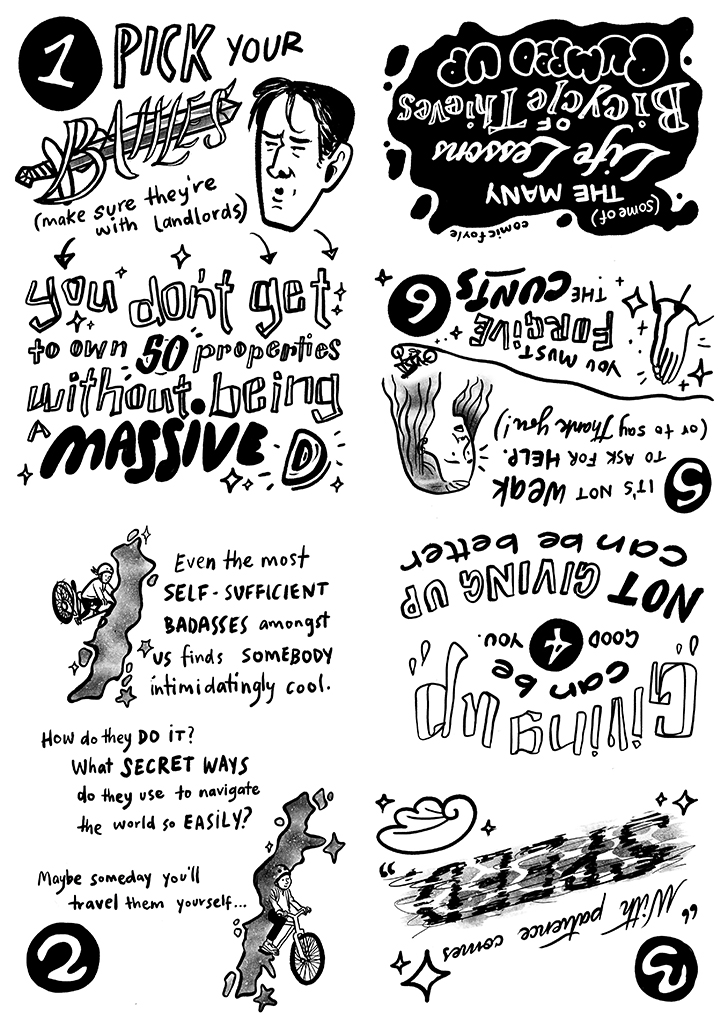 comicfoyle
(some of)
THE MANY
Life Lessons
OF
Bicycle Thieves
PUMPED UP
1 PICK YOUR
BATTLES
(make sure they're
with landlords)
you don't get
to own 50 properties
without.being
A MASSIVE D
Even the most
SELF-SUFFICIENT
BADASSES amongst
us finds SOMEBODY
intimidatingly cool.
How do they DO IT?
What SECRET WAYS
do they use to navigate
the world so EASILY?
Maybe someday you'll
travel them yourself...
2
3
"With patience comes
SPEED"
Giving up
can be
GOOD 4 YOU.
NOT GIVING UP
can be better
5 IT'S NOT weak
TO ASK FOR HELP.
(or to say Thank you!)
YOU MUST
FORGIVE
THE CUNTS
6